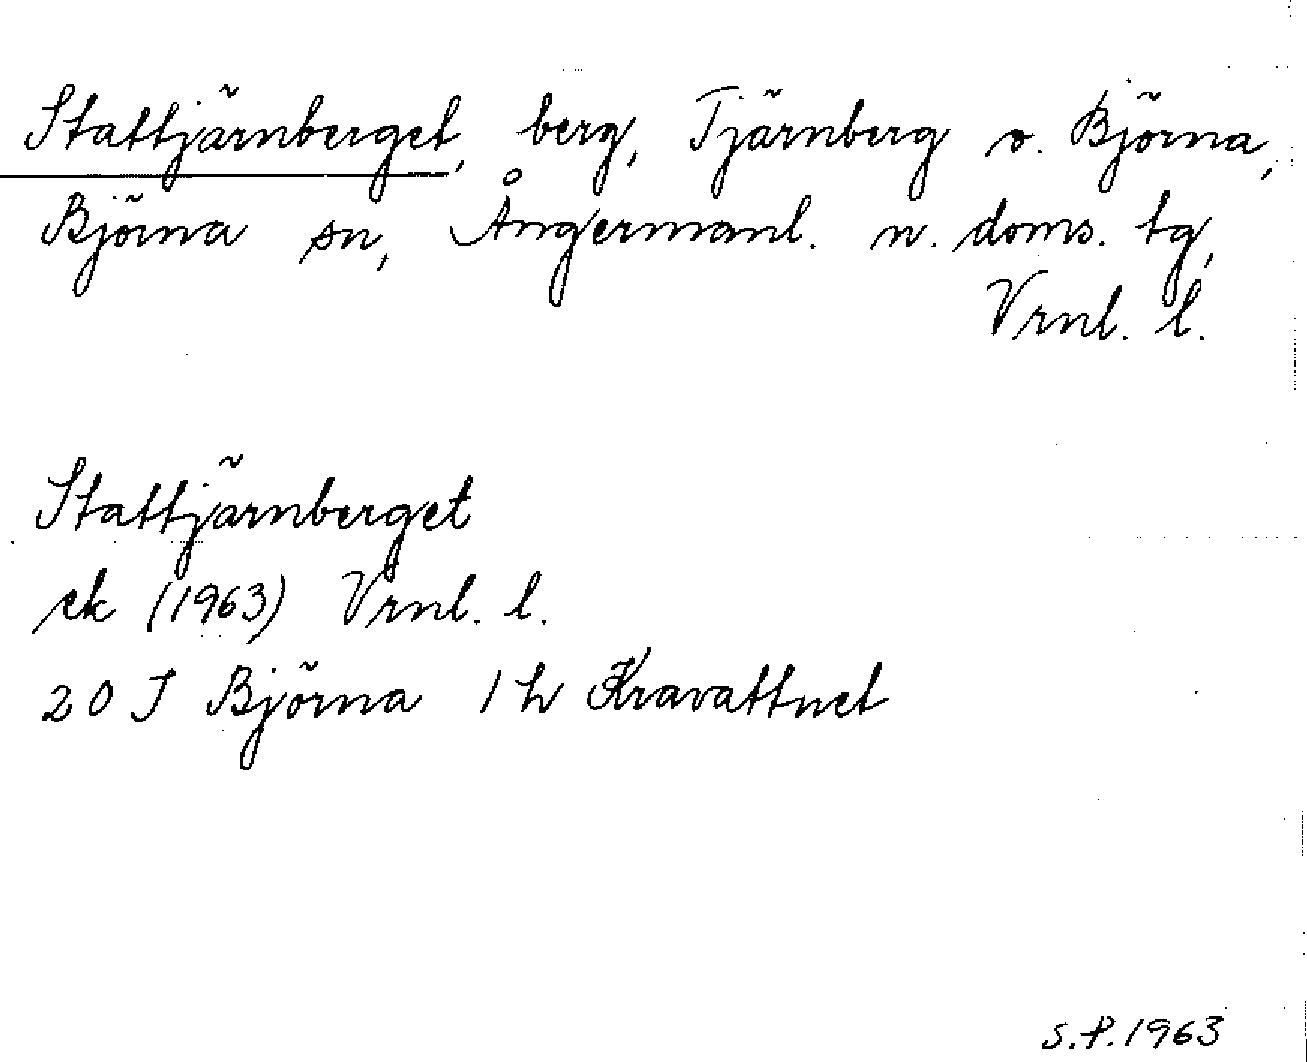 Stattjärnberget, berg, Tjärnberg o. Björna,
Björna sn, Ångermanl. n. doms. tg,
Vrnl. l.
Stattjärnberget
ek (1963) Vrnl. l.
20 J Björna 1 h Kravattnet
S.P. 1963